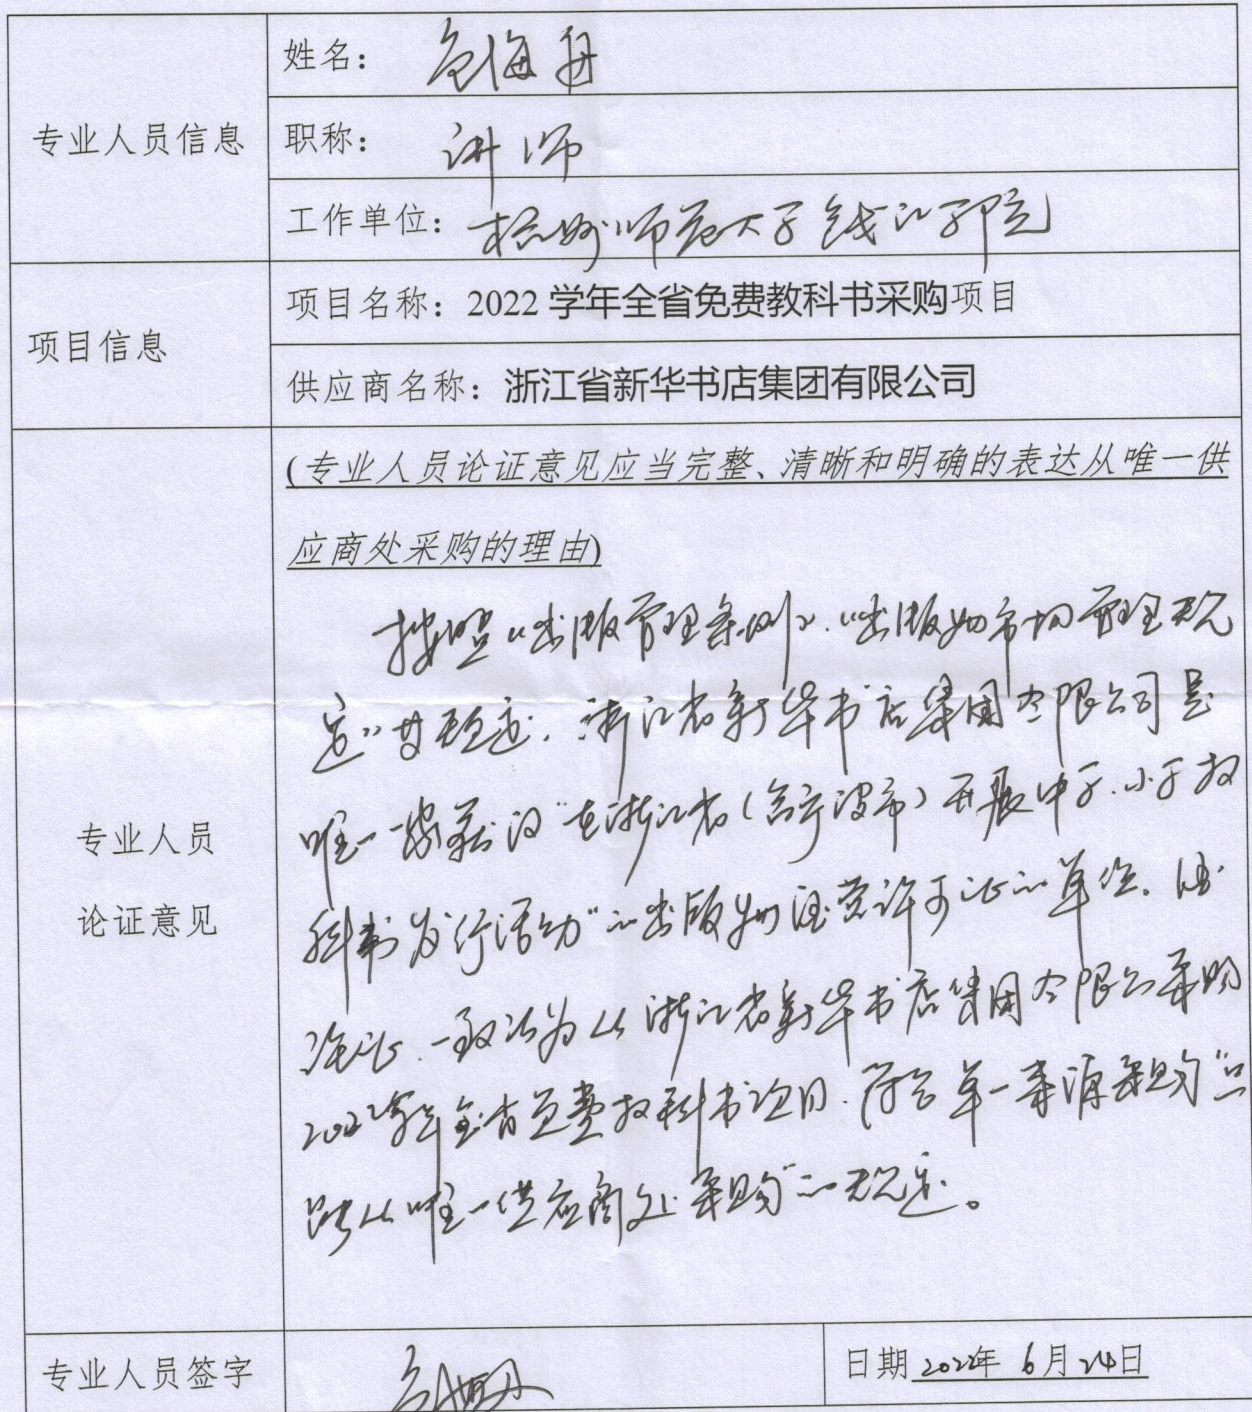 专业人员信息
姓名：
职称：讲师
工作单位：杭州师范大学钱江学院
项目信息
项目名称：2022 学年全省免费教科书采购项目
供应商名称：浙江省新华书店集团有限公司
专业人员
论证意见
(专业人员论证意见应当完整、清晰和明确的表达从唯一供
应商处采购的理由)
按照《出版管理条例》、《出版物市场管理规
定》等规定，浙江省新华书店集团有限公司是
唯一一家获得“在浙江省（含宁波市）开展中学、小学教
科书发行活动”的出版物经营许可证的单位。经
论证，一致认为从浙江省新华书店集团有限公采购
2022学年全省免费教科书项目，符合单一来源采购“只
能从唯一供应商处采购”的规定。
专业人员签字
日期 2022年 6月24日